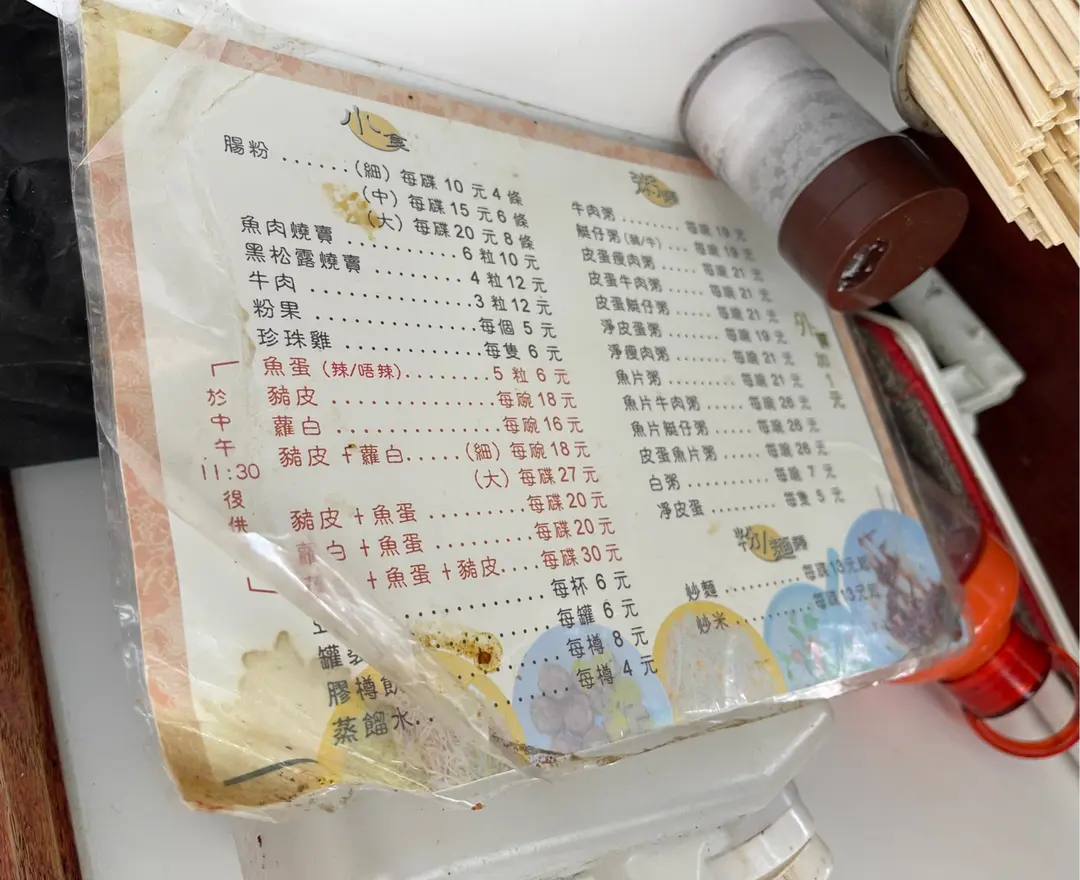 小食
腸粉 ...... (細) 每碟 10 元 4 條
(中) 每碟 15 元 6 條
(大) 每碟 20 元 8 條
魚肉燒賣 .......... 6 粒 10 元
黑松露燒賣 ........ 4 粒 12 元
牛肉 .............. 3 粒 12 元
粉果 .............. 每個 5 元
珍珠雞 ............ 每隻 6 元
魚蛋 (辣/唔辣) ......... 5 粒 6 元
豬皮 .............. 每碗 18 元
蘿白 .............. 每碗 16 元
豬皮 + 蘿白 ..... (細) 每碗 18 元
(大) 每碟 27 元
豬皮 + 魚蛋 ........ 每碟 20 元
蘿白 + 魚蛋 ........ 每碟 20 元
+ 魚蛋 + 豬皮 .... 每碟 30 元
於中午
11:30
後供
每杯 6 元
罐 每罐 6 元
膠樽飲 每樽 8 元
蒸餾水 .. 每樽 4 元
粥類
牛肉粥 ........ 每碗 19 元
艇仔粥 (豬/牛) .... 每碗 19 元
皮蛋瘦肉粥 .... 每碗 21 元
皮蛋牛肉粥 .... 每碗 21 元
皮蛋艇仔粥 .... 每碗 21 元
淨皮蛋粥 ...... 每碗 19 元
淨瘦肉粥 ...... 每碗 21 元
魚片粥 ........ 每碗 21 元
魚片牛肉粥 ..... 每碗 26 元
魚片艇仔粥 ..... 每碗 26 元
皮蛋魚片粥 ..... 每碗 26 元
白粥 .......... 每碗 7 元
淨皮蛋 ........ 每隻 5 元
外賣加1元
粉/麵類
炒麵 ........ 每碟13元起
炒米 ........ 每碟13元起